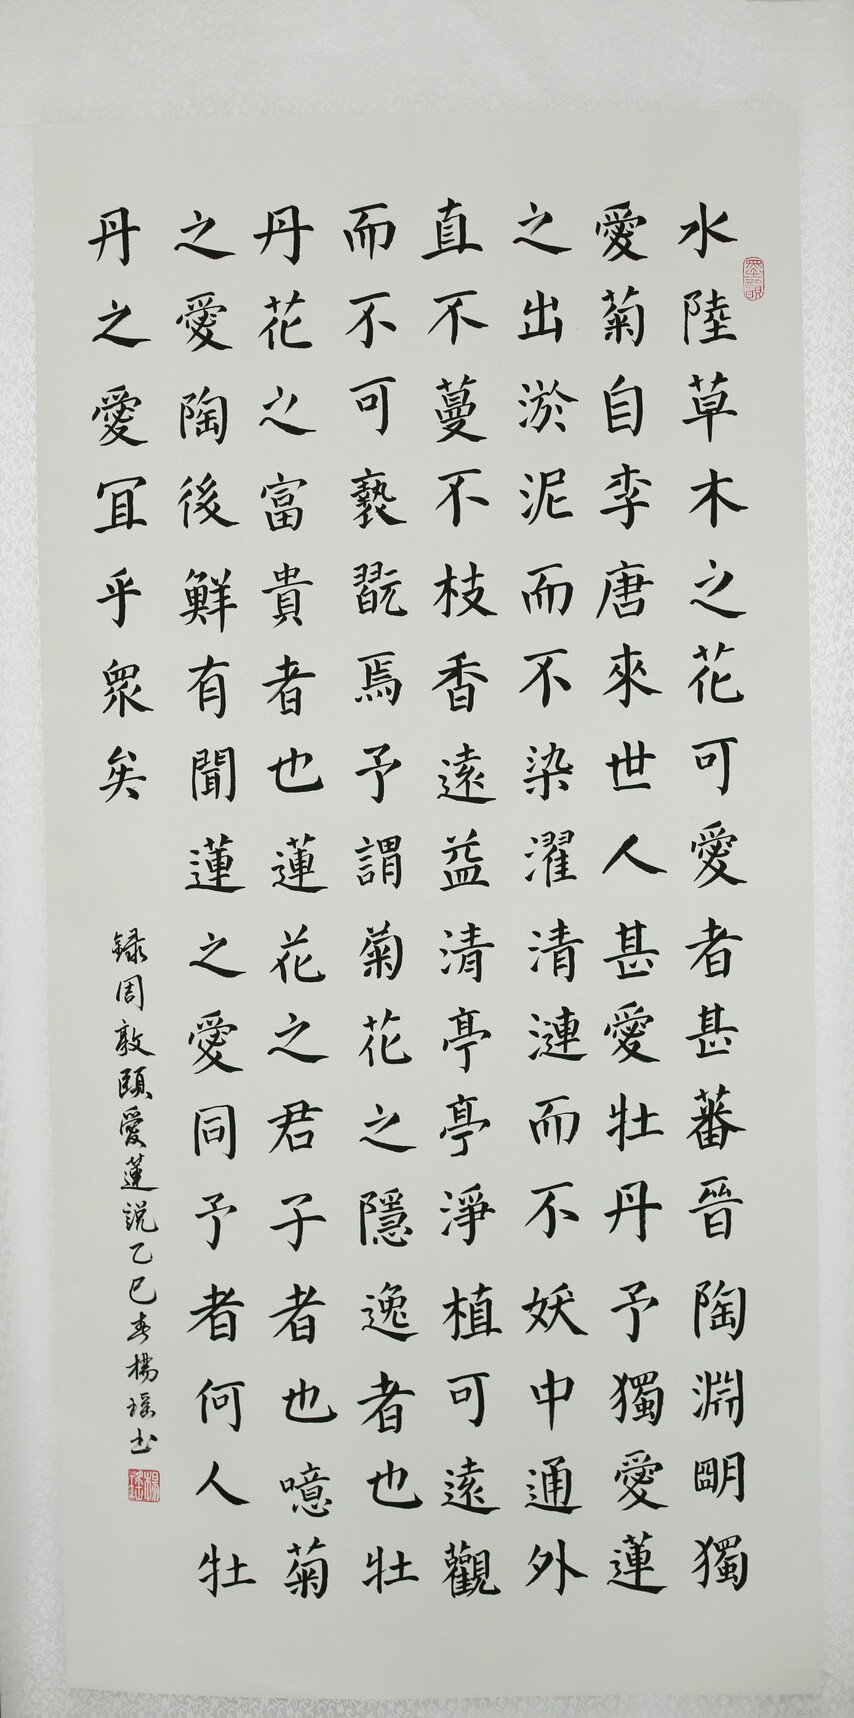 水陸草木之花可愛者甚蕃晉陶淵明獨
愛菊自李唐來世人甚愛牡丹予獨愛蓮
之出淤泥而不染濯清漣而不妖中通外
直不蔓不枝香遠益清亭亭淨植可遠觀
而不可褻翫焉予謂菊花之隱逸者也牡
丹花之富貴者也蓮花之君子者也噫菊
之愛陶後鮮有聞蓮之愛同予者何人牡
丹之愛冝乎眾矣
録周敦頤愛蓮説乙巳春楊瑶书